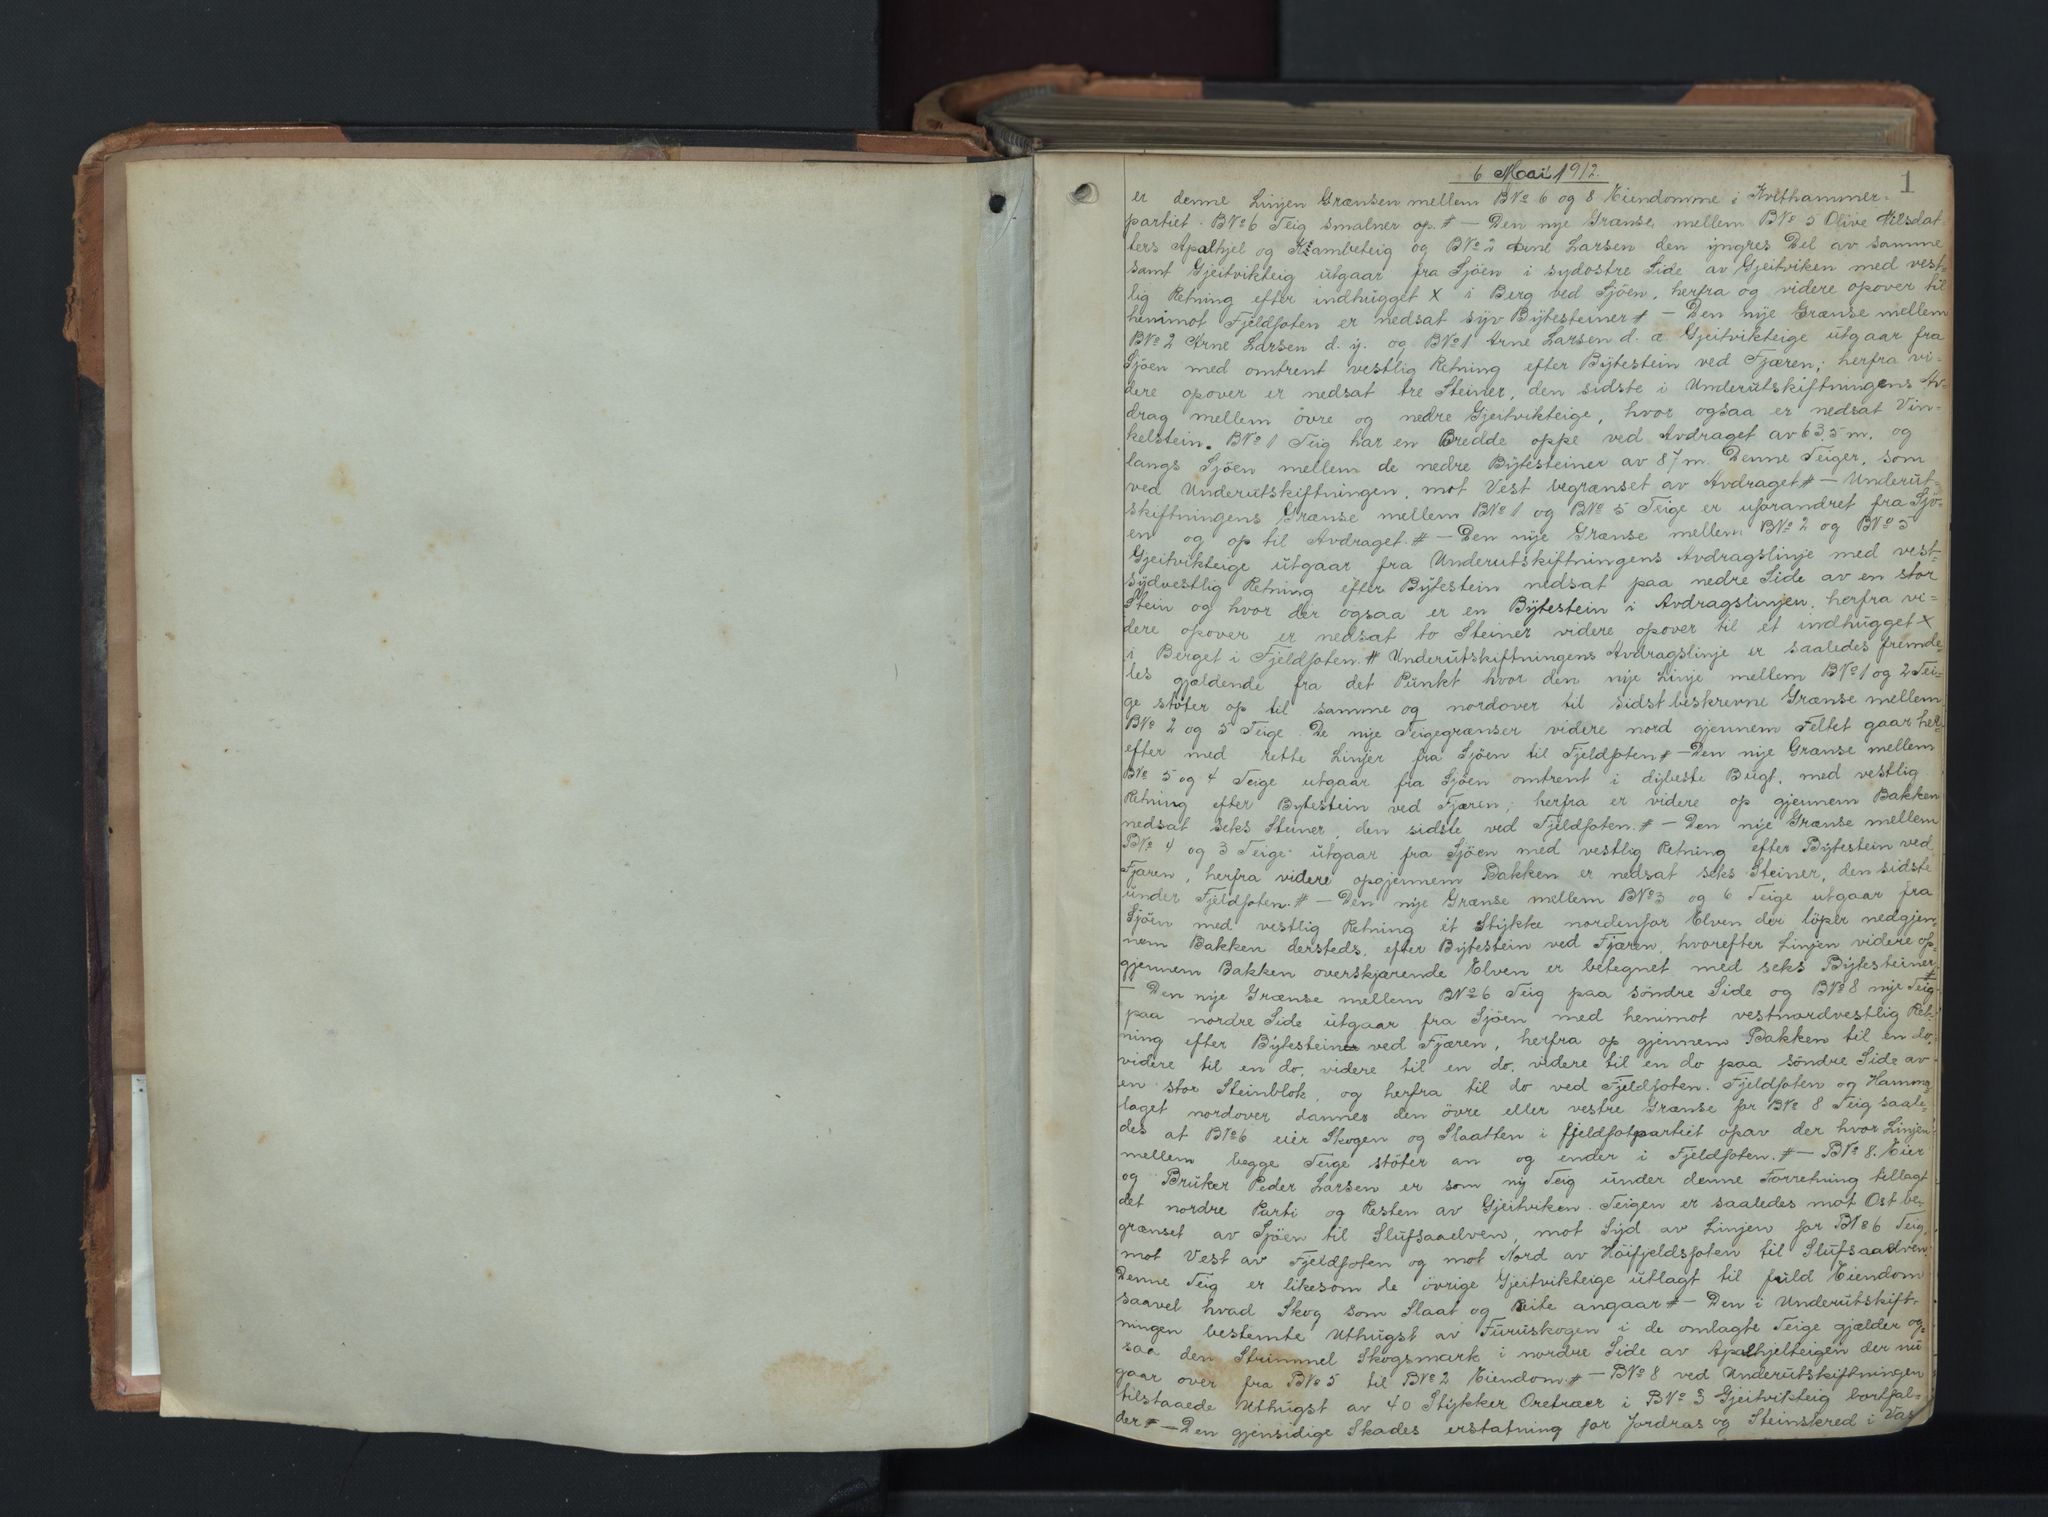 6 Mai 1912.
1
er denne Linjen Grænsen mellem BNo 6 og 8 Eiendomme i Kvithammer-
partiet. BNo 6 Teig smalner op. # — Den nye Grænse mellem BNo 5 Olive Nilsdat-
ters Apalhjel og Kambeteig og BNo 2 Arne Larsen den yngres Del av samme
samt Gjeitvikteig utgaar fra Sjöen i sydostre Side av Gjeitviken med vest-
lig Retning efter indhugget X i Berg ved Sjöen, herfra og videre opover til
henimot Fjeldfoten er nedsat syv Bytesteiner # — Den nye Grænse mellem
BNo 2 Arne Larsen d. y. og BNo 1 Arne Larsen d. æ. Gjeitvikteige utgaar fra
Sjöen med omtrent vestlig Retning efter Bytestein ved Fjæren; herfra vi-
dere opover er nedsat tre Steiner, den sidste i Underutskiftningens Av-
drag mellem övre og nedre Gjeitvikteige, hvor ogsaa er nedsat Vin-
kelstein. BNo 1 Teig har en Bredde oppe ved Avdraget av 63,5 m. og
langs Sjöen mellem de nedre Bytesteiner av 87 m. Denne Teiger, som
ved Underutskiftningen, mot Vest begrænset av Avdraget # — Underut-
skiftningens Grænse mellem BNo 1 og BNo 5 Teige er uforandret fra Sjö-
en og op til Avdraget. # — Den nye Grænse mellem BNo 2 og BNo 5
Gjeitvikteige utgaar fra Underutskiftningens Avdragslinje med vest-
sydvestlig Retning efter Bytestein nedsat paa nedre Side av en stor
Stein og hvor der ogsaa er en Bytestein i Avdragslinjen, herfra vi-
dere opover er nedsat to Steiner videre opover til et indhugget X
i Berget i Fjeldfoten. # Underutskiftningens Avdragslinje er saaledes fremde-
les gjældende fra det Punkt hvor den nye Linje mellem BNo 1 og 2 Tei-
ge stöter op til samme og nordover til sidst beskrevne Grænse mellem
BNo 2 og 5 Teige. De nye Teigegrænser videre nord gjennem Feltet gaar her-
efter med rette Linjer fra Sjöen til Fjeldfoten # — Den nye Grænse mellem
BNo 5 og 4 Teige utgaar fra Sjöen omtrent i dybeste Bugt, med vestlig
Retning efter Bytestein ved Fjæren; herfra er videre op gjennem Bakken
nedsat seks Steiner, den sidste ved Fjeldfoten. # — Den nye Grænse mellem
BNo 4 og 3 Teige utgaar fra Sjöen med vestlig Retning efter Bytestein ved
Fjæren, herfra videre opgjennem Bakken er nedsat seks Steiner, den sidste
under Fjeldfoten. # — Den nye Grænse mellem BNo 3 og 6 Teige utgaar fra
Sjöen med vestlig Retning et Stykke nordenfor Elven der löper nedgjen-
nem Bakken dersteds, efter Bytestein ved Fjæren, hvorefter Linjen videre op-
gjennem Bakken overskjærende Elven er betegnet med seks Bytesteiner #
— Den nye Grænse mellem BNo 6 Teig paa söndre Side og BNo 8 nye Teig
paa nordre Side utgaar fra Sjöen med henimot vestnordvestlig Ret-
ning efter Bytestein ved Fjæren, herfra op gjennem Bakken til en do,
videre til en do, videre til en do, videre til en do paa söndre Side av
en stor Steinblok, og herfra til do ved Fjeldfoten. Fjeldfoten og Hamma-
laget nordover danner den övre eller vestre Grænse for BNo 8 Teig saale-
des at BNo 6 eier Skogen og Slaatten i fjeldfotpartiet opav der hvor Linjen
mellem begge Teige stöter an og ender i Fjeldfoten. # — BNo 8. Eier
og Bruker Peder Larsen er som ny Teig under denne Forretning tillagt
det nordre Parti og Resten av Gjeitviken. Teigen er saaledes mot Ost be-
grænset av Sjöen til Slufsaaelven, mot Syd av Linjen for BNo 6 Teig,
mot Vest av Fjeldfoten og mot Nord av Höifjeldsfoten til Slufsaaelven.
Denne Teig er likesom de övrige Gjeitvikteige utlagt til fuld Eiendom
saavel hvad Skog som Slaat og Beite angaar # — Den i Underutskift-
ningen bestemte Uthugst av Furuskogen i de omlagte Teige gjælder og-
saa den Strimmel Skogsmark i nordre Side av Apalhjelteigen der nu
gaar over fra BNo 5 til BNo 2 Eiendom. # — BNo 8 ved Underutskiftningen
tilstaaede Uthugst av 40 Stykker Oretræer i BNo 3 Gjeitvikteig bortfal-
der # — Den gjensidige Skadeserstatning for Jordras og Steinskred i Vas-